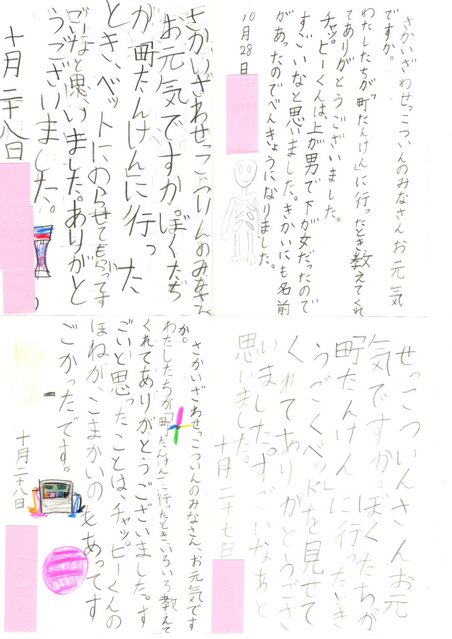 さかいざわせっこついんのみなさんお元気
ですか。
わたしたちが「町たんけん」に行ったとき教えてくれ
てありがとうございました。
チャッピーくんは上が男で下が女だったので
すごいなと思いました。きかいにも名前
があったのでべんきょうになりました。
10月28日
さかいざわせっこついんのみなさん
お元気ですか。ぼくたち
が「町たんけん」に行った
とき、ベットにのらせてもらってす
ごいなと思いました。ありがと
うございました。
十月二十八日
せっこついんさんお元
気ですか。ぼくたちが
「町たんけん」に行ったとき
うごくベッドを見せて
くれてありがとうござ
いました。すごいなあと
思いました。
十月二十七日
さかいざわせっこついんのみなさん、お元気です
か。
わたしたちが「町たんけん」に行ったときいろいろ教えて
くれてありがとうございました。す
ごいと思ったことは、チャッピーくんの
ほねがこまかいのもあってす
ごかったです。
十月二十八日